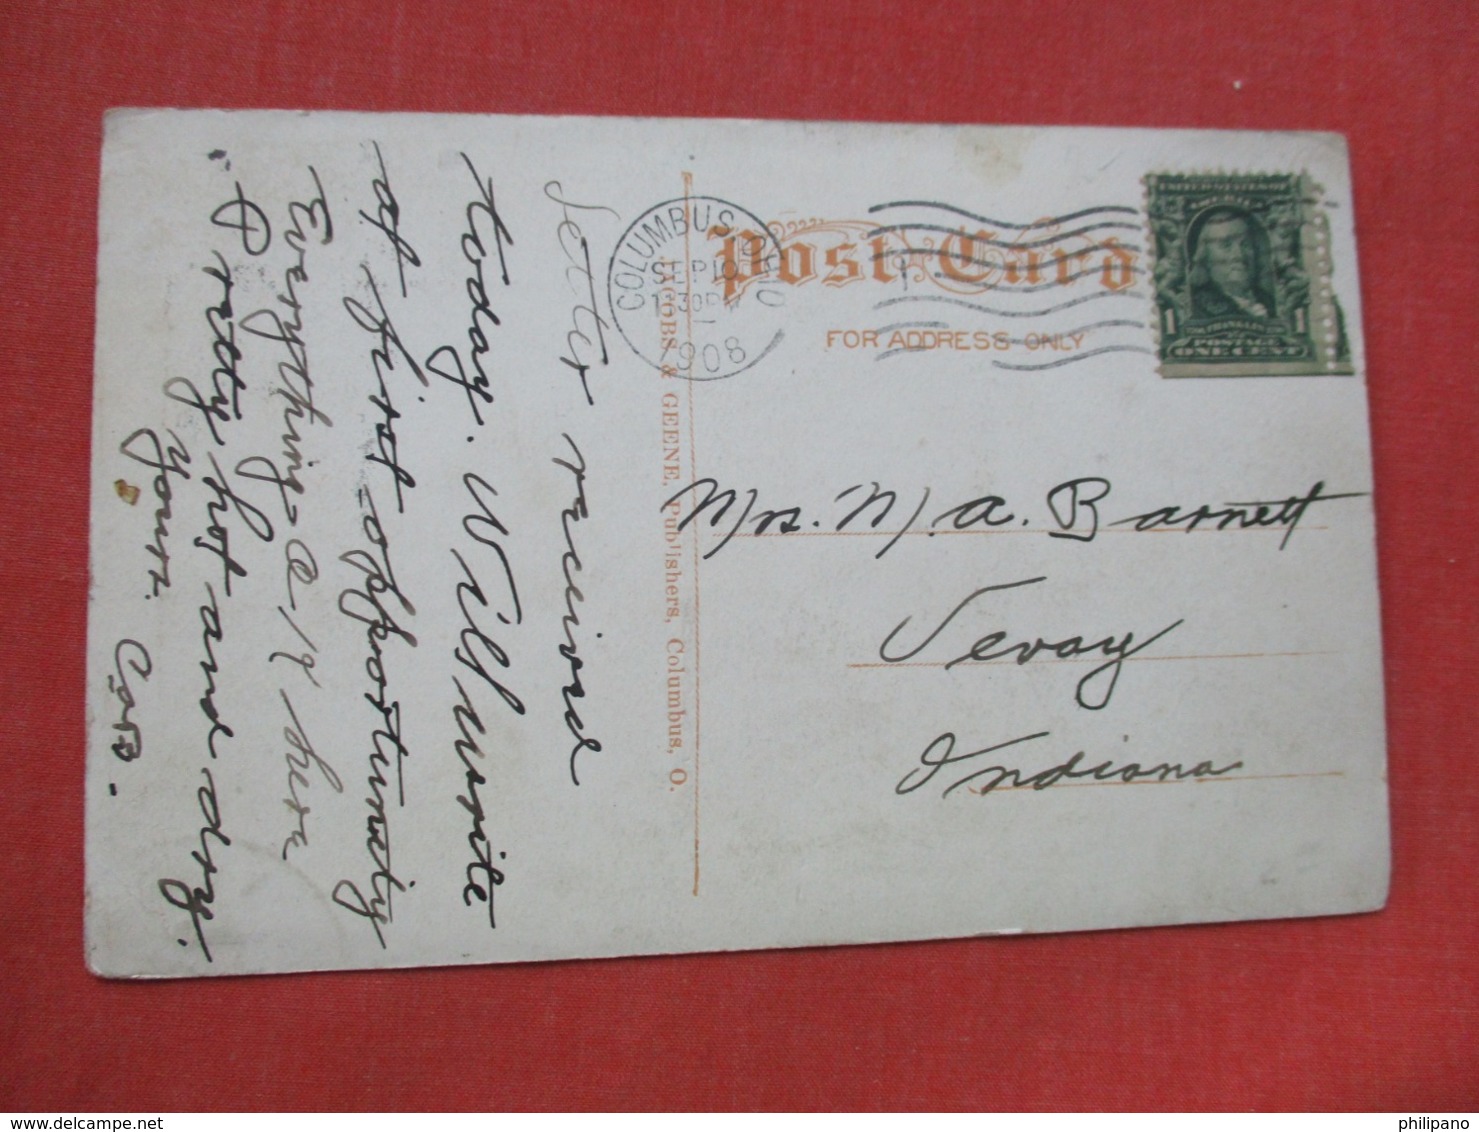 Letter received
today. Will write
at first opportunity
Everything O.K. here
Pretty hot and dry.
Yours.
C.A.B.
JACOBS & GEENE, Publishers, Columbus, O.
COLUMBUS, OHIO
SEP 10
1908
Post Card
FOR ADDRESS ONLY
UNITED STATES OF
AMERICA
FRANKLIN
1 POSTAGE 1
ONE CENT
Mrs. M. A. Barnett
Vevay
Indiana
philipano
delcampe.net